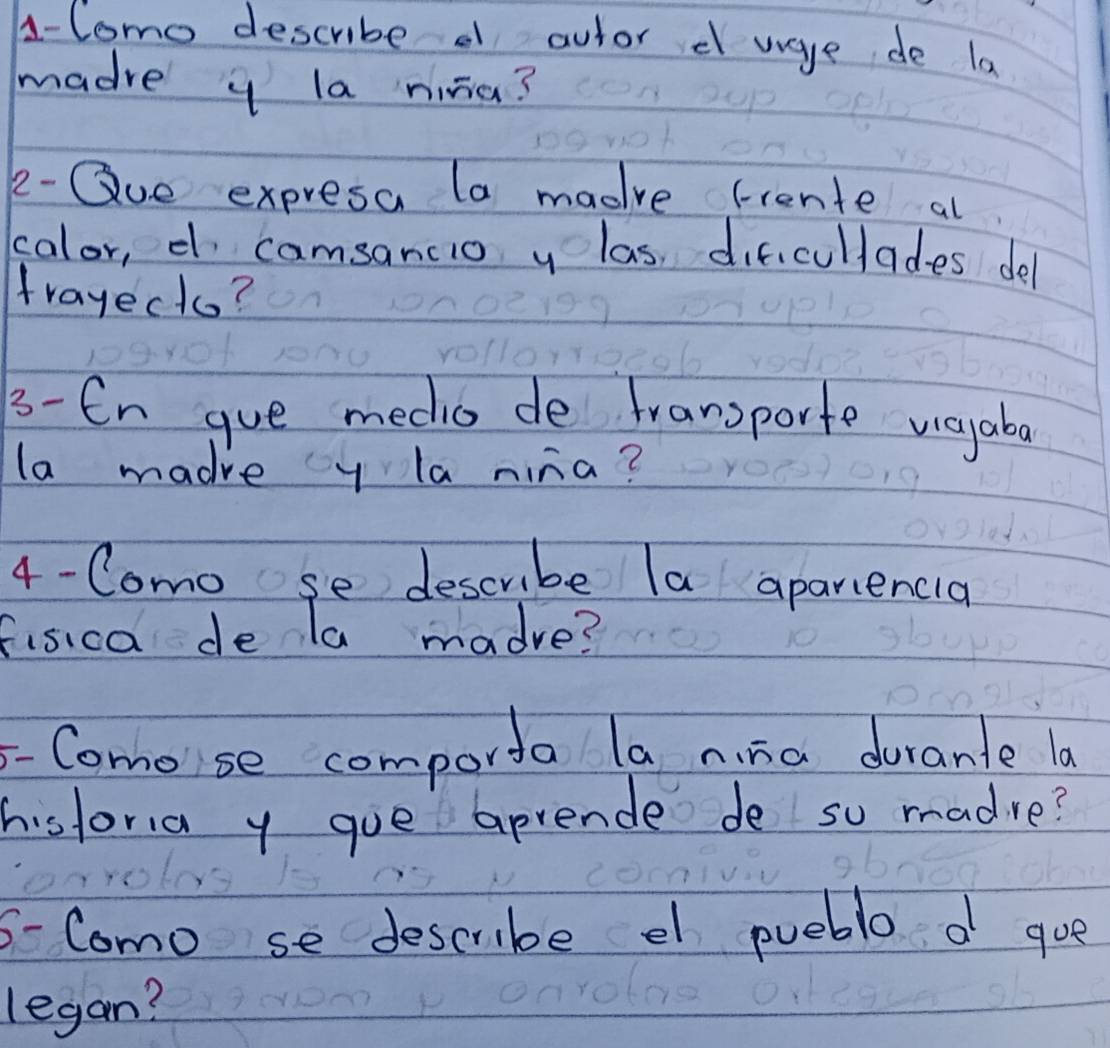 1-Como describe el autor el viaje de la
madre y la niña?
2-Que expresa la madre frente al
calor, el camsancio y las dificultades del
trayecto?
3-En que medio de transporte viajaba
la madre y la niña?
4-Como se describe la apariencia
fisica de la madre?
5-Como se comporta la niña durante la
historia y que aprende de su madre?
6-Como se describe el pueblo al que
legan?